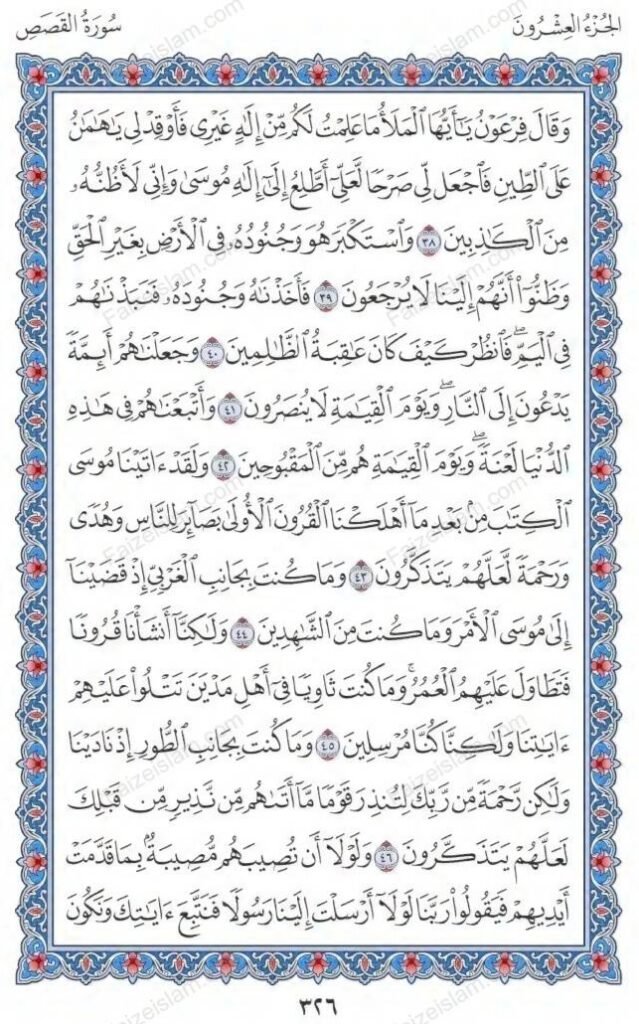 الجُزْءُ العِشْرُونَ
سُورَةُ القَصَصِ
وَقَالَ فِرْعَوْنُ يَٰٓأَيُّهَا ٱلْمَلَأُ مَا عَلِمْتُ لَكُم مِّنْ إِلَٰهٍ غَيْرِى فَأَوْقِدْ لِى يَٰهَٰمَٰنُ
عَلَى ٱلطِّينِ فَٱجْعَل لِّى صَرْحًا لَّعَلِّىٓ أَطَّلِعُ إِلَىٰٓ إِلَٰهِ مُوسَىٰ وَإِنِّى لَأَظُنُّهُۥ
مِنَ ٱلْكَٰذِبِينَ ٣٨ وَٱسْتَكْبَرَ هُوَ وَجُنُودُهُۥ فِى ٱلْأَرْضِ بِغَيْرِ ٱلْحَقِّ
وَظَنُّوٓا۟ أَنَّهُمْ إِلَيْنَا لَا يُرْجَعُونَ ٣٩ فَأَخَذْنَٰهُ وَجُنُودَهُۥ فَنَبَذْنَٰهُمْ
فِى ٱلْيَمِّ ۖ فَٱنظُرْ كَيْفَ كَانَ عَٰقِبَةُ ٱلظَّٰلِمِينَ ٤٠ وَجَعَلْنَٰهُمْ أَئِمَّةً
يَدْعُونَ إِلَى ٱلنَّارِ ۖ وَيَوْمَ ٱلْقِيَٰمَةِ لَا يُنصَرُونَ ٤١ وَأَتْبَعْنَٰهُمْ فِى هَٰذِهِ
ٱلدُّنْيَا لَعْنَةً ۖ وَيَوْمَ ٱلْقِيَٰمَةِ هُم مِّنَ ٱلْمَقْبُوحِينَ ٤٢ وَلَقَدْ ءَاتَيْنَا مُوسَى
ٱلْكِتَٰبَ مِنۢ بَعْدِ مَآ أَهْلَكْنَا ٱلْقُرُونَ ٱلْأُولَىٰ بَصَآئِرَ لِلنَّاسِ وَهُدًى
وَرَحْمَةً لَّعَلَّهُمْ يَتَذَكَّرُونَ ٤٣ وَمَا كُنتَ بِجَانِبِ ٱلْغَرْبِىِّ إِذْ قَضَيْنَآ
إِلَىٰ مُوسَى ٱلْأَمْرَ وَمَا كُنتَ مِنَ ٱلشَّٰهِدِينَ ٤٤ وَلَٰكِنَّآ أَنشَأْنَا قُرُونًا
فَتَطَاوَلَ عَلَيْهِمُ ٱلْعُمُرُ ۚ وَمَا كُنتَ ثَاوِيًا فِىٓ أَهْلِ مَدْيَنَ تَتْلُوا۟ عَلَيْهِمْ
ءَايَٰتِنَا وَلَٰكِنَّا كُنَّا مُرْسِلِينَ ٤٥ وَمَا كُنتَ بِجَانِبِ ٱلطُّورِ إِذْ نَادَيْنَا
وَلَٰكِن رَّحْمَةً مِّن رَّبِّكَ لِتُنذِرَ قَوْمًا مَّآ أَتَىٰهُم مِّن نَّذِيرٍ مِّن قَبْلِكَ
لَعَلَّهُمْ يَتَذَكَّرُونَ ٤٦ وَلَوْلَآ أَن تُصِيبَهُم مُّصِيبَةٌۢ بِمَا قَدَّمَتْ
أَيْدِيهِمْ فَيَقُولُوا۟ رَبَّنَا لَوْلَآ أَرْسَلْتَ إِلَيْنَا رَسُولًا فَنَتَّبِعَ ءَايَٰتِكَ وَنَكُونَ
٣٢٦
Faizeislam.com